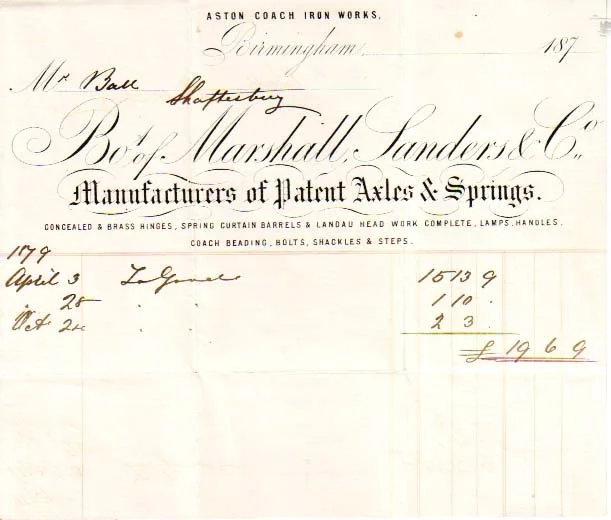 ASTON COACH IRON WORKS,
Birmingham 187
Mr Ball
Shaftesbury
Bot. of Marshall, Sanders & Co.,
Manufacturers of Patent Axles & Springs.
CONCEALED & BRASS HINGES, SPRING CURTAIN BARRELS & LANDAU HEAD WORK COMPLETE, LAMPS, HANDLES,
COACH BEADING, BOLTS, SHACKLES & STEPS.
1879
April 3 To Goods 15 13 9
" 28 " " 1 10 "
Oct 24 " " 2 3 "
£ 19 6 9